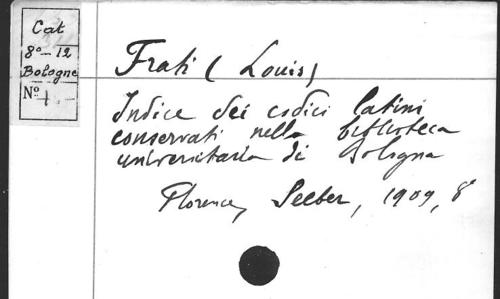 Cat
8° - 12
Bologne
N° 1. -
Frati (Louis)
Indice dei codici latini
conservati nella biblioteca
universitaria di Bologna
Florence, Seeber, 1909, 8°